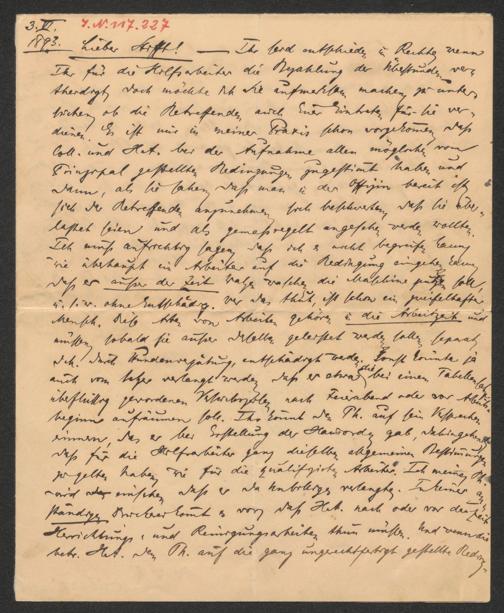 3. VI. J.N. 117.227
1893. Lieber Höfft! — Ihr seid entschieden i. Rechte, wenn
Ihr für die Hilfsarbeiter die Bezahlung der Überstunden ver-
theidigt, doch möchte ich Sie aufmerksam machen, zu unter-
suchen, ob die Betreffenden auch Euer Eintreten für sie ver-
dienen. Es ist mir in meiner Praxis schon vorgekommen, daß
Coll. und H.A. bei der Aufnahme allen möglichen vom
Prinzipal gestellten Bedingungen zugestimmt haben und
dann, als sie sahen, daß man i. der Offizin bereit ist
sich der Betreffenden anzunehmen, sich beschwerten, daß sie über-
lastet seien und als gemaßregelt angesehen werden wollten.
Ich muß aufrichtig sagen, daß ich es nicht begreifen kann,
wie überhaupt ein Arbeiter auf die Bedingung eingehen kann,
daß er außer der Zeit Walzen waschen, die Maschine putzen soll,
u.s.w. ohne Entschädig. Wer das thut, ist schon ein zweifelhafter
Mensch. Diese Arten von Arbeiten gehören i. die Arbeitszeit und
müssen, sobald sie außer derselben geleistet werden sollen, separat
d.h. durch Stundenvergütung, entschädigt werden. Sonst könnte ja
auch vom Setzer verlangt werden, daß er etwa die bei einem Tabellensatz
überflüssig gewordenen nach Feierabend oder vor
beginn aufräumen soll. Ihr könnt den Th. auf sein Versprechen
erinnern, das er bei Erstellung der Hausordg. gab, dahingehend,
daß für die Hilfsarbeiter ganz dieselben allgemeinen Bestimmungen
zu gelten haben, wie für die qualifizirten Arbeiter. Ich meine, Th.
wird einsehen, daß er da Unbilliges verlangte. In keiner an-
ständigen Druckerei kommt es vor, daß H.A. nach oder vor der Zeit
Herrichtungs- und Reinigungsarbeiten thun müssen. Und wenn die
betr. H.A. dem Th. auf die ganz ungerechtfertigt gestellte Beding-